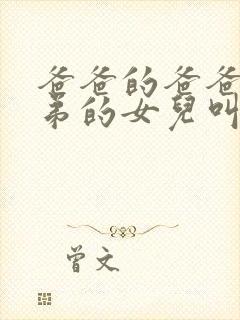 爸爸的爸爸
弟的女兒叫
曾文